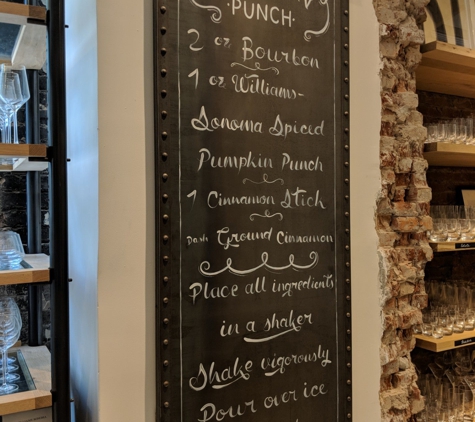 ·PUNCH·
2 oz Bourbon
1 oz Williams-
Sonoma Spiced
Pumpkin Punch
1 Cinnamon Stick
Dash Ground Cinnamon
Place all ingredients
in a shaker
Shake vigorously
Pour over ice